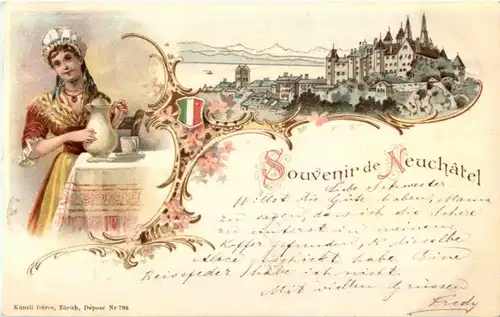 Souvenir de Neuchâtel
Liebe Schwester
Willst die Güte haben, Mama
zu sagen, dass ich die Schere
zu unterst in meinem
Koffer gefunden, & dieselbe
Alice geschickt habe. Eine
Reisfeder habe ich nicht.
Mit vielen Grüssen
Fredy
Künzli frères, Zürich, Déposé Nr 798